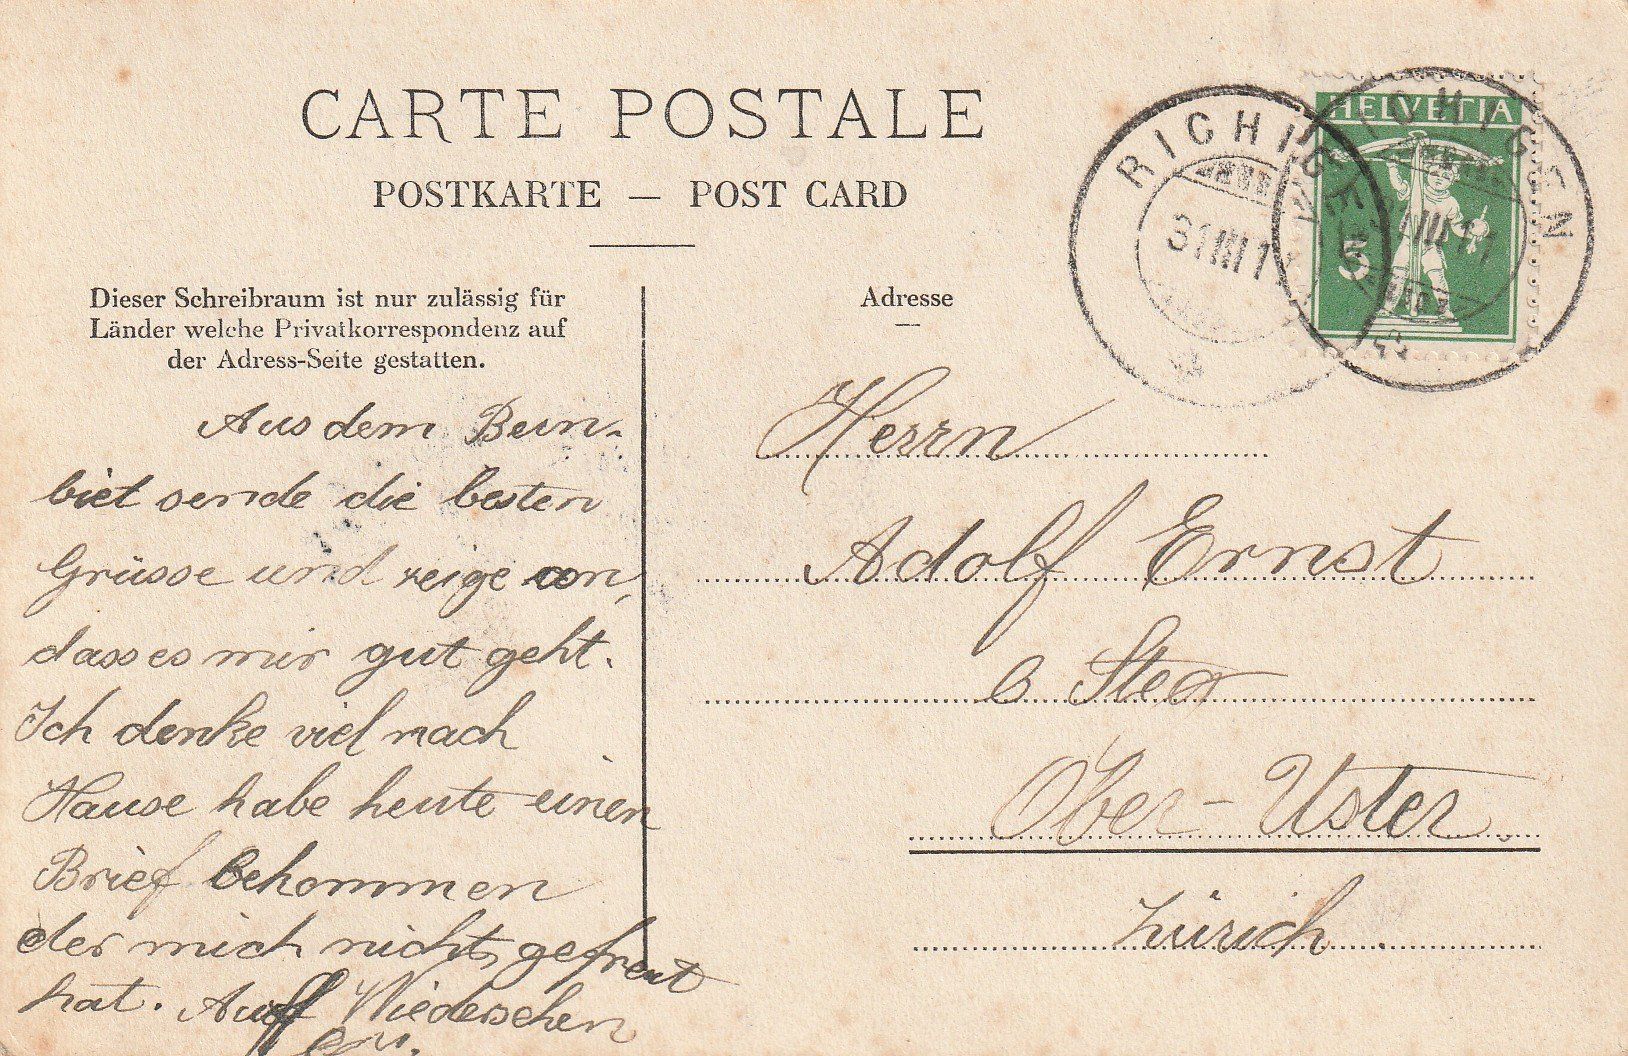 CARTE POSTALE
POSTKARTE — POST CARD
Dieser Schreibraum ist nur zulässig für
Länder welche Privatkorrespondenz auf
der Adress-Seite gestatten.
Adresse
RICHIGEN
31 III 1
HELVETIA
5
RICHIGEN
31 III 11
Aus dem Bern-
biet sende die besten
Grüsse und zeige an,
dass es mir gut geht.
Ich denke viel nach
Hause habe heute einen
Brief bekommen
der mich nicht gefreut
hat. Auf Wiedersehen
Herrn
Adolf Ernst
Ober-Uster
Zürich